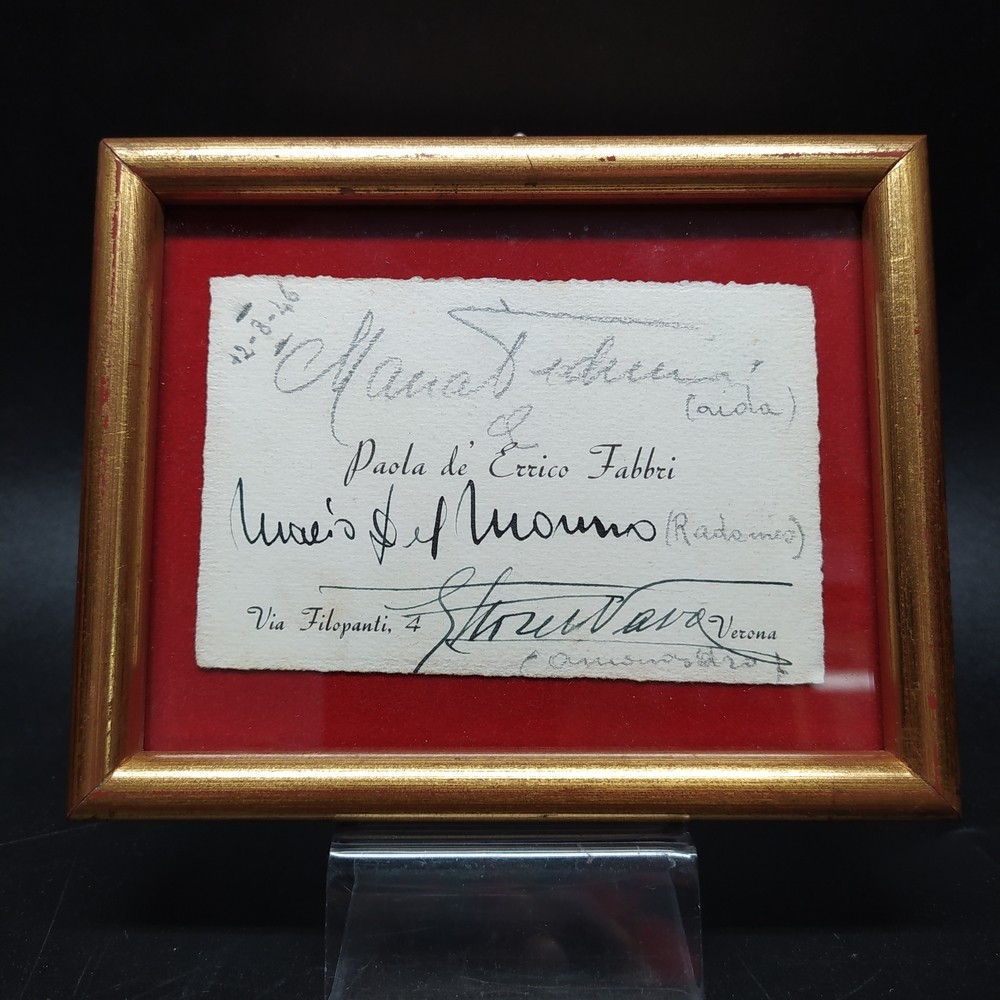 2-8-46
Maria Pedrini
(aida)
&
Paola de' Errico Fabbri
Mario Del Monaco (Radames)
Via Filopanti, 4
Verona
(amonasro)